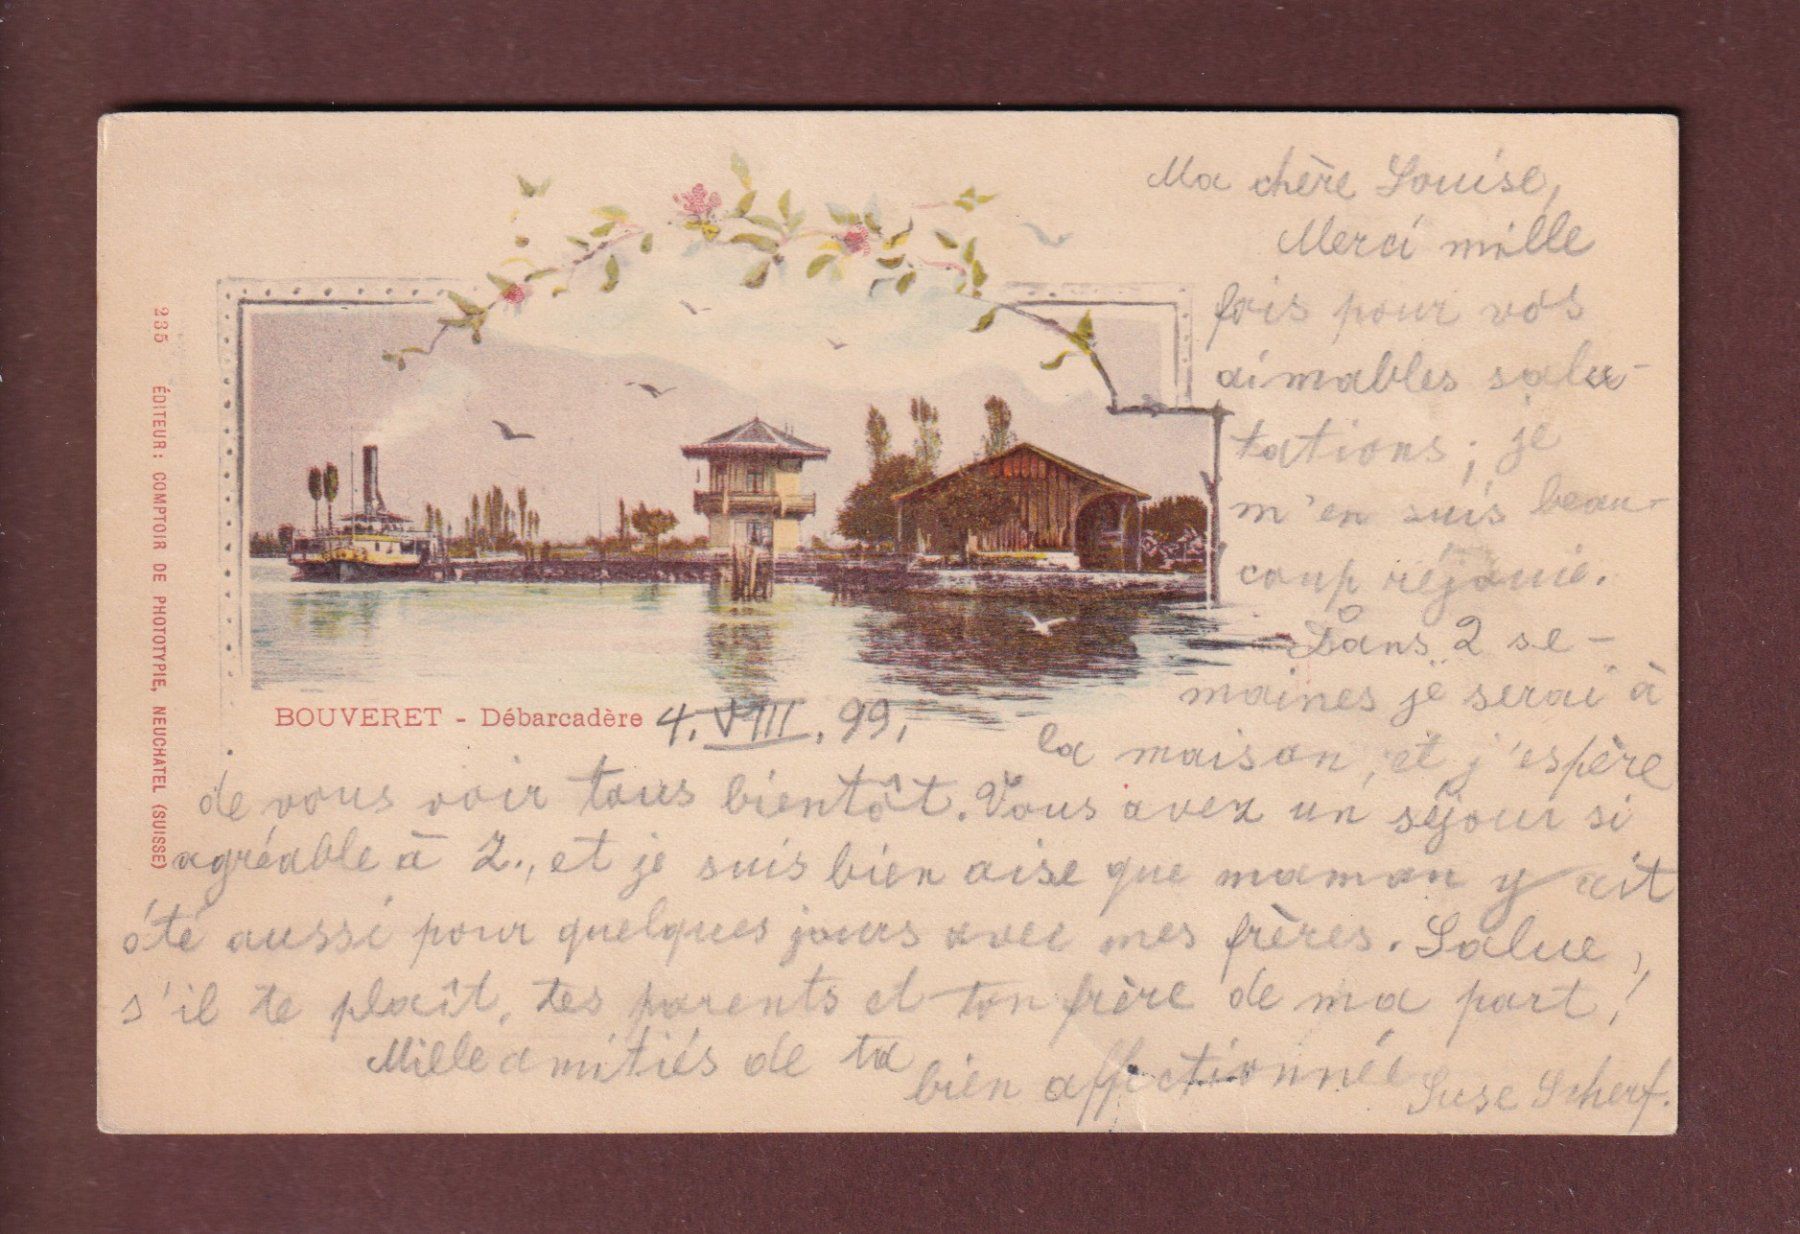 Ma chère Louise,
Merci mille
fois pour vos
aimables salu-
tations; je
m'en suis beau-
coup réjouie.
Dans 2 se-
maines je serai à
la maison, et j'espère
de vous voir tous bientôt. Vous avez un séjour si
agréable à Z., et je suis bien aise que maman y ait
été aussi pour quelques jours avec mes frères. Salue,
s'il te plaît, tes parents et ton frère de ma part!
Mille amitiés de ta
bien affectionnée Suse Scherf.
BOUVERET - Débarcadère 4. VIII. 99.
235 ÉDITEUR: COMPTOIR DE PHOTOTYPIE, NEUCHATEL (SUISSE)